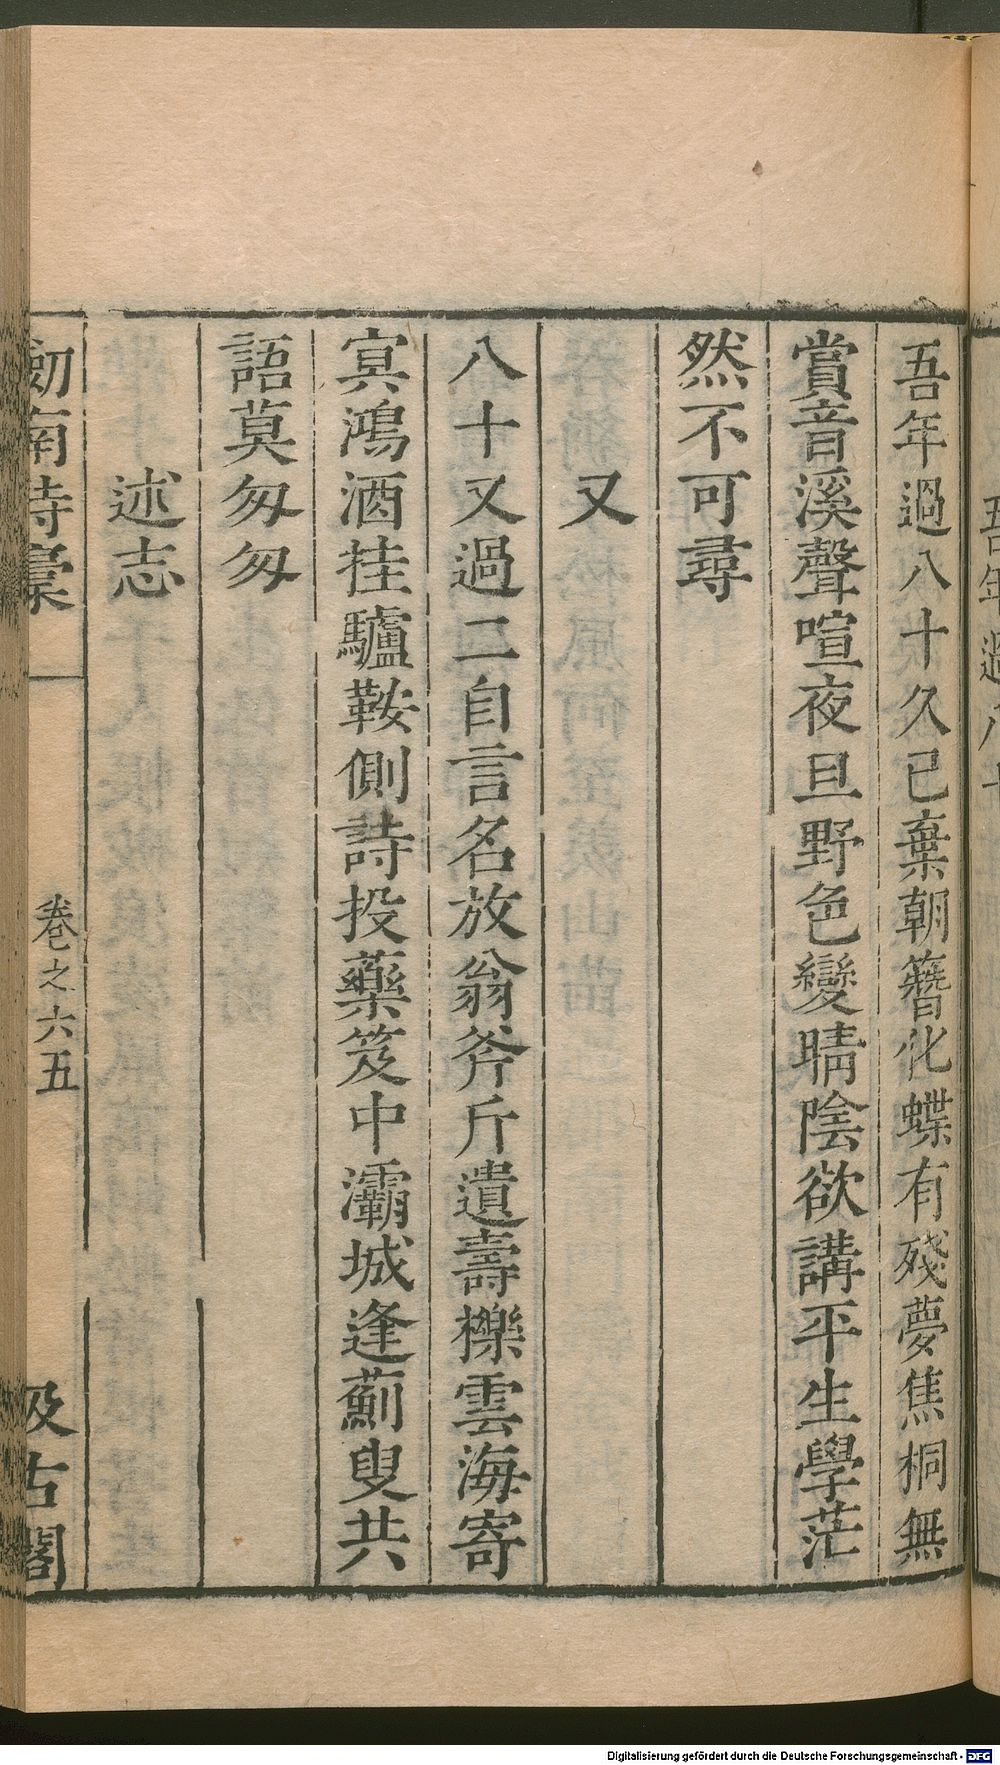 吾年過八十久已棄朝簪化蝶有殘夢焦桐無
賞音溪聲喧夜旦野色變晴陰欲講平生學茫
然不可尋
又
八十又過二自言名放翁斧斤遺壽櫟雲海寄
冥鴻酒挂驢鞍側詩投藥笈中灞城逢薊叟共
語莫匆匆
述志
劒南詩稾
卷之六五
汲古閣
Digitalisierung gefördert durch die Deutsche Forschungsgemeinschaft - DFG